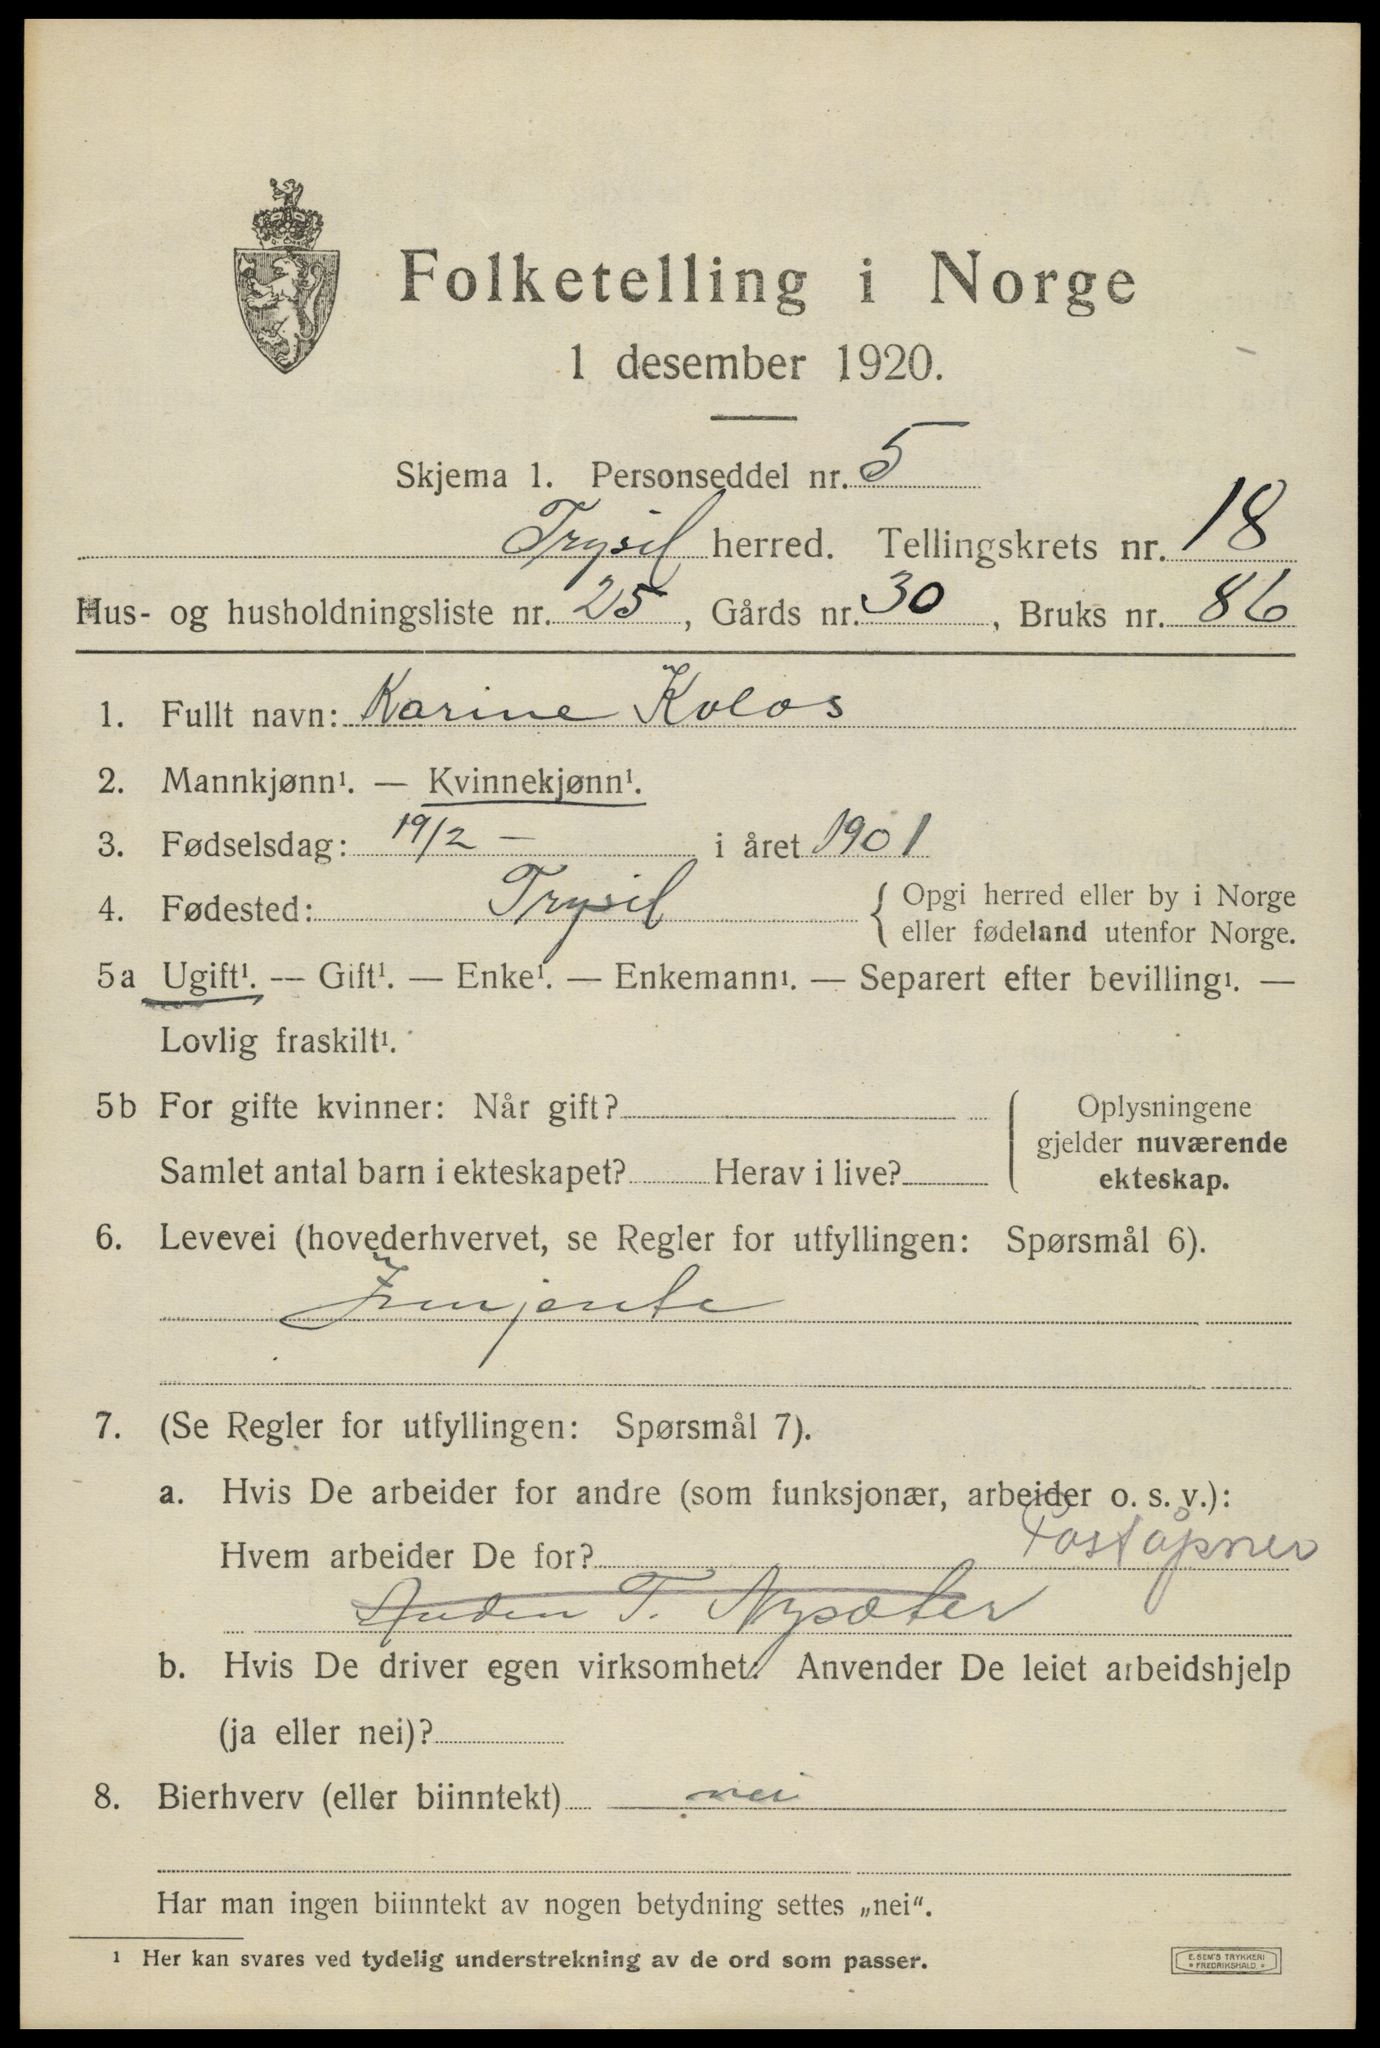 Folketelling i Norge
1 desember 1920.
Skjema 1. Personseddel nr. 5
Trysil herred. Tellingskrets nr. 18
Hus- og husholdningsliste nr. 25, Gårds nr. 30, Bruks nr. 86
1. Fullt navn: Karine Kolos
2. Mannkjønn¹. — Kvinnekjønn¹.
3. Fødselsdag: 19/2 — i året 1901
4. Fødested: Trysil { Opgi herred eller by i Norge
eller fødeland utenfor Norge.
5a Ugift¹. — Gift¹. — Enke¹. — Enkemann¹. — Separert efter bevilling¹. —
Lovlig fraskilt¹.
5b For gifte kvinner: Når gift? Oplysningene
gjelder nuværende
Samlet antal barn i ekteskapet? Herav i live? ekteskap.
6. Levevei (hovederhvervet, se Regler for utfyllingen: Spørsmål 6).
7. (Se Regler for utfyllingen: Spørsmål 7).
a. Hvis De arbeider for andre (som funksjonær, arbeider o. s. v.):
Hvem arbeider De for? Poståpner
T. Nysæter
b. Hvis De driver egen virksomhet: Anvender De leiet arbeidshjelp
(ja eller nei)?
8. Bierhverv (eller biinntekt) nei
Har man ingen biinntekt av nogen betydning settes „nei“.
¹ Her kan svares ved tydelig understrekning av de ord som passer.
E. SEM'S TRYKKERI
FREDRIKSHALD